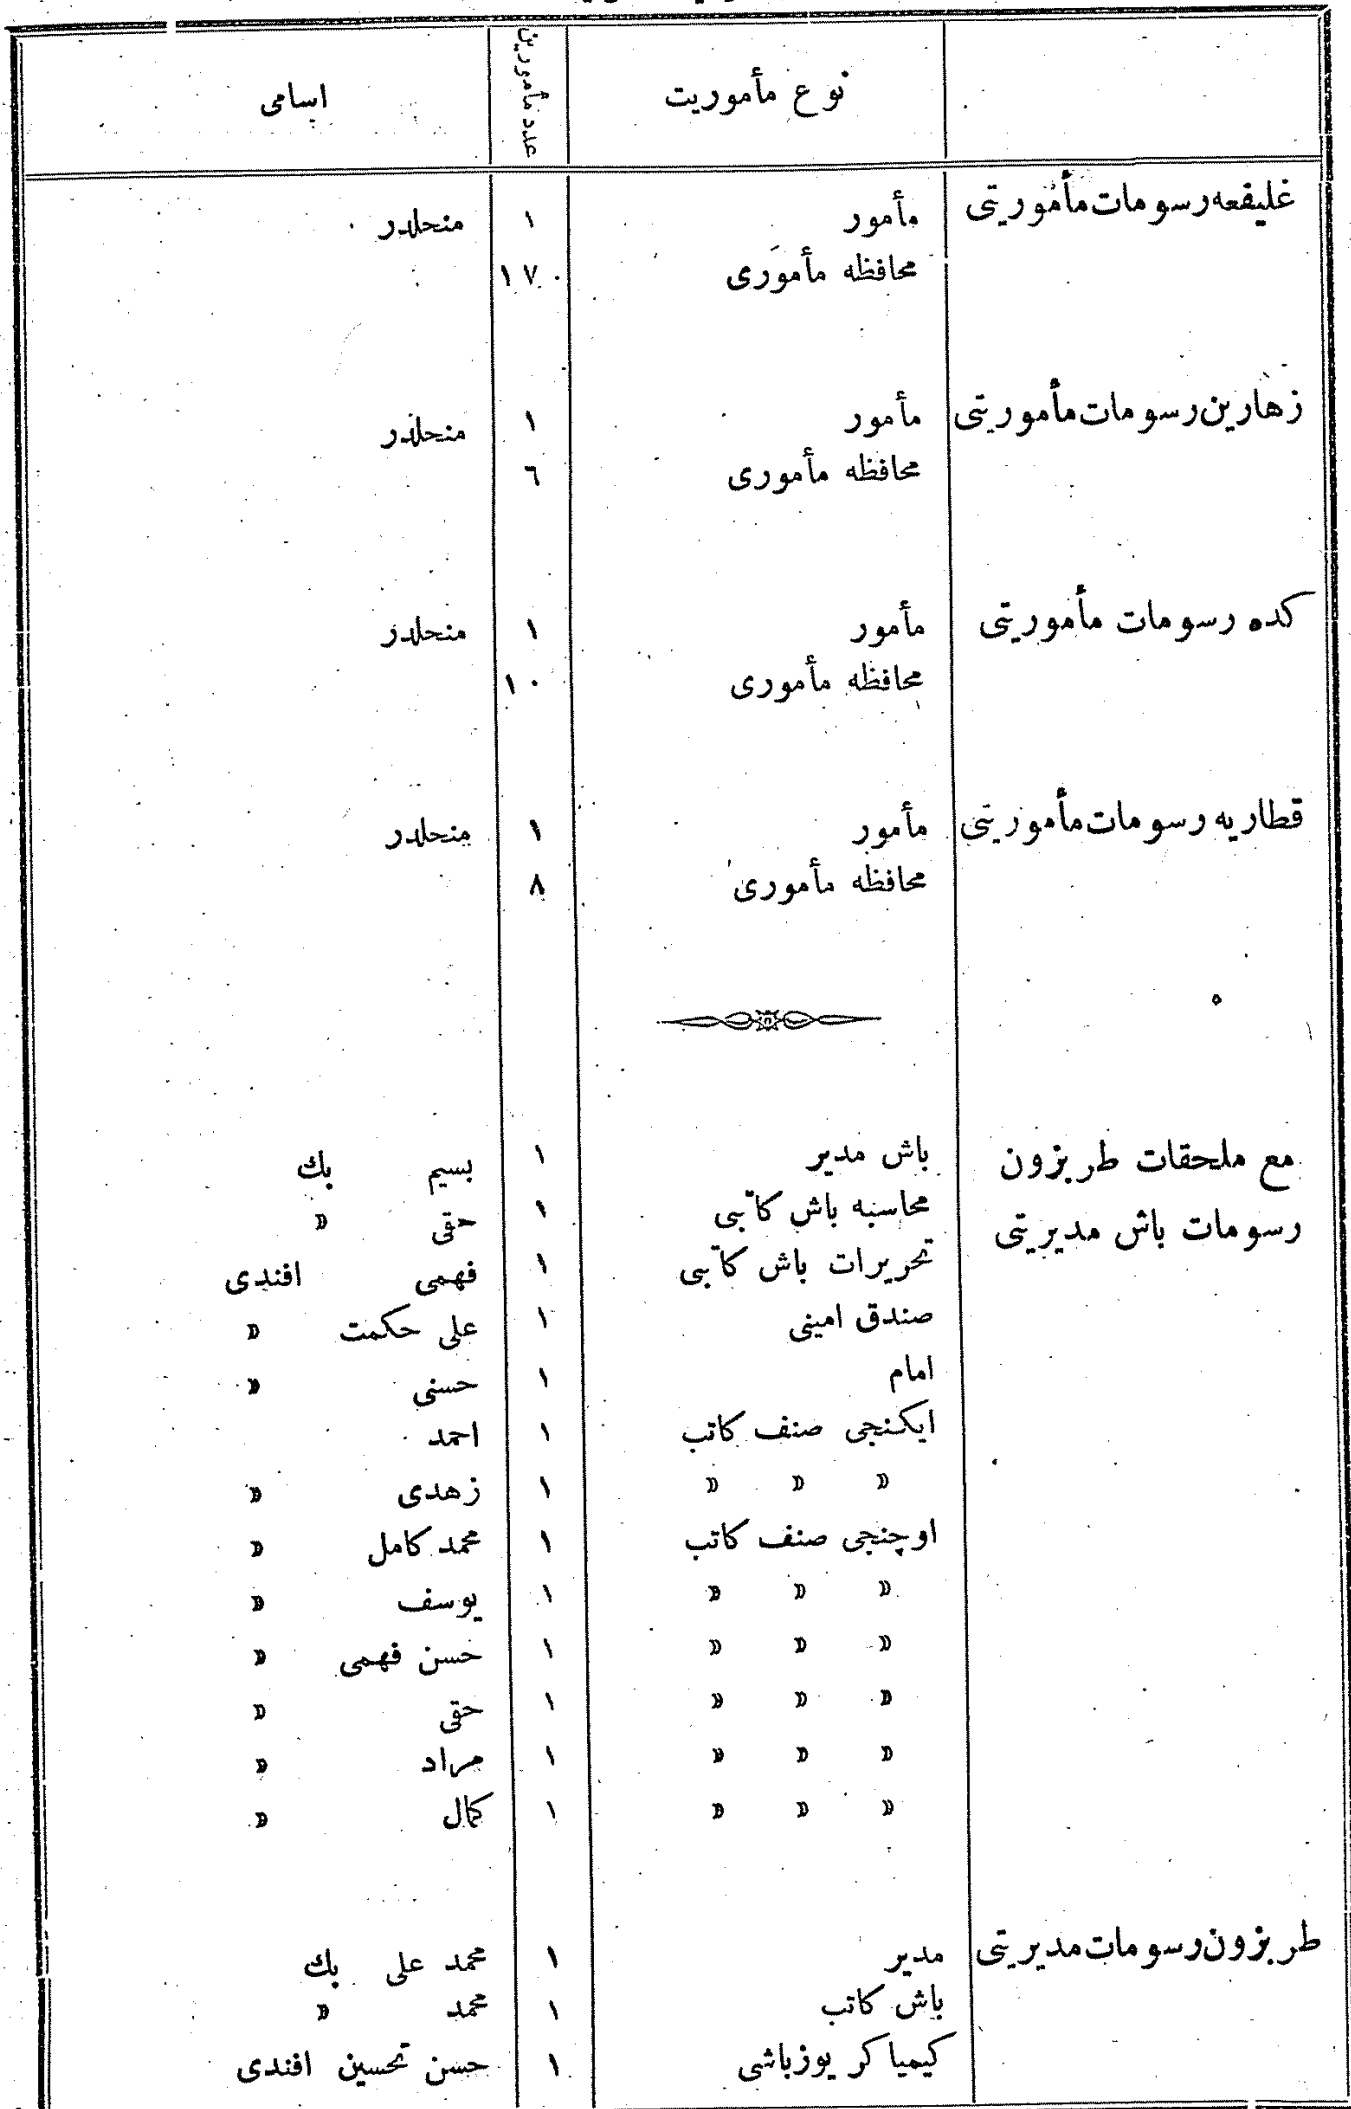 نوع مأموریت عدد مأمورین اسامی
غلیفعه رسومات مأموریتی مأمور ١ منحلدر
محافظه مأموری ١٧
زهارین رسومات مأموریتی مأمور ١ منحلدر
محافظه مأموری ٦
کده رسومات مأموریتی مأمور ١ منحلدر
محافظه مأموری ١٠
قطاریه رسومات مأموریتی مأمور ١ منحلدر
محافظه مأموری ٨
مع ملحقات طربزون باش مدیر ١ بسیم بك
رسومات باش مدیریتی محاسبه باش کاتبی ١ حقی »
تحریرات باش کاتبی ١ فهمی افندی
صندق امینی ١ علی حکمت »
امام ١ حسنی »
ایکنجی صنف کاتب ١ احمد
» » » ١ زهدی »
اوچنجی صنف کاتب ١ محمد کامل »
» » » ١ یوسف »
» » » ١ حسن فهمی »
» » » ١ حقی »
» » » ١ مراد »
» » » ١ کمال »
طربزون رسومات مدیریتی مدیر ١ محمد علی بك
باش کاتب ١ محمد »
کیمیاکر یوزباشی ١ حسن تحسین افندی